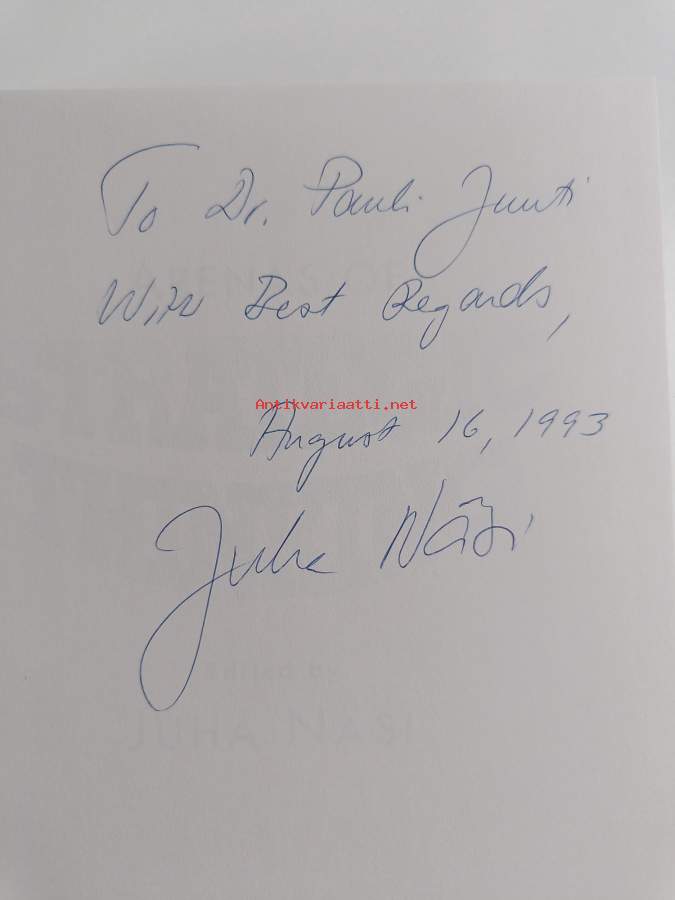 To Dr. Pauli Juuti
With Best Regards,
Antikvariaatti.net
August 16, 1993
Juha Näsi
ARENAS OF
Edited by
JUHA NÄSI